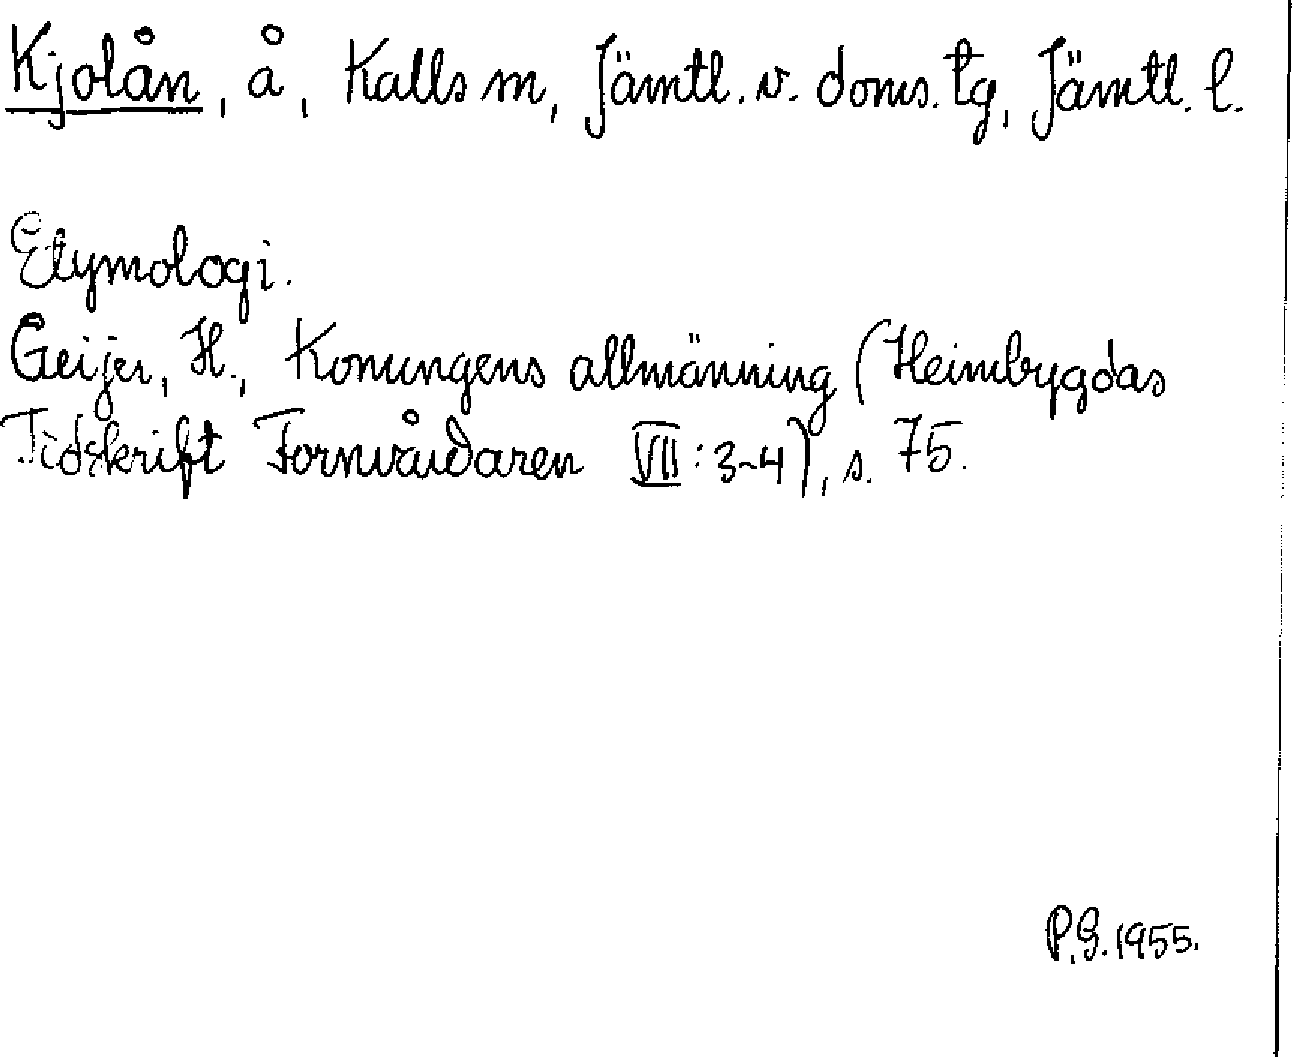 Kjolån, å, Kalls sn, Jämtl. v. doms. tg, Jämtl. l.
Etymologi.
Geijer, H., Konungens allmänning (Heimbygdas
Tidskrift Fornvårdaren VII: 3-4), s. 75.
P.G. 1955.